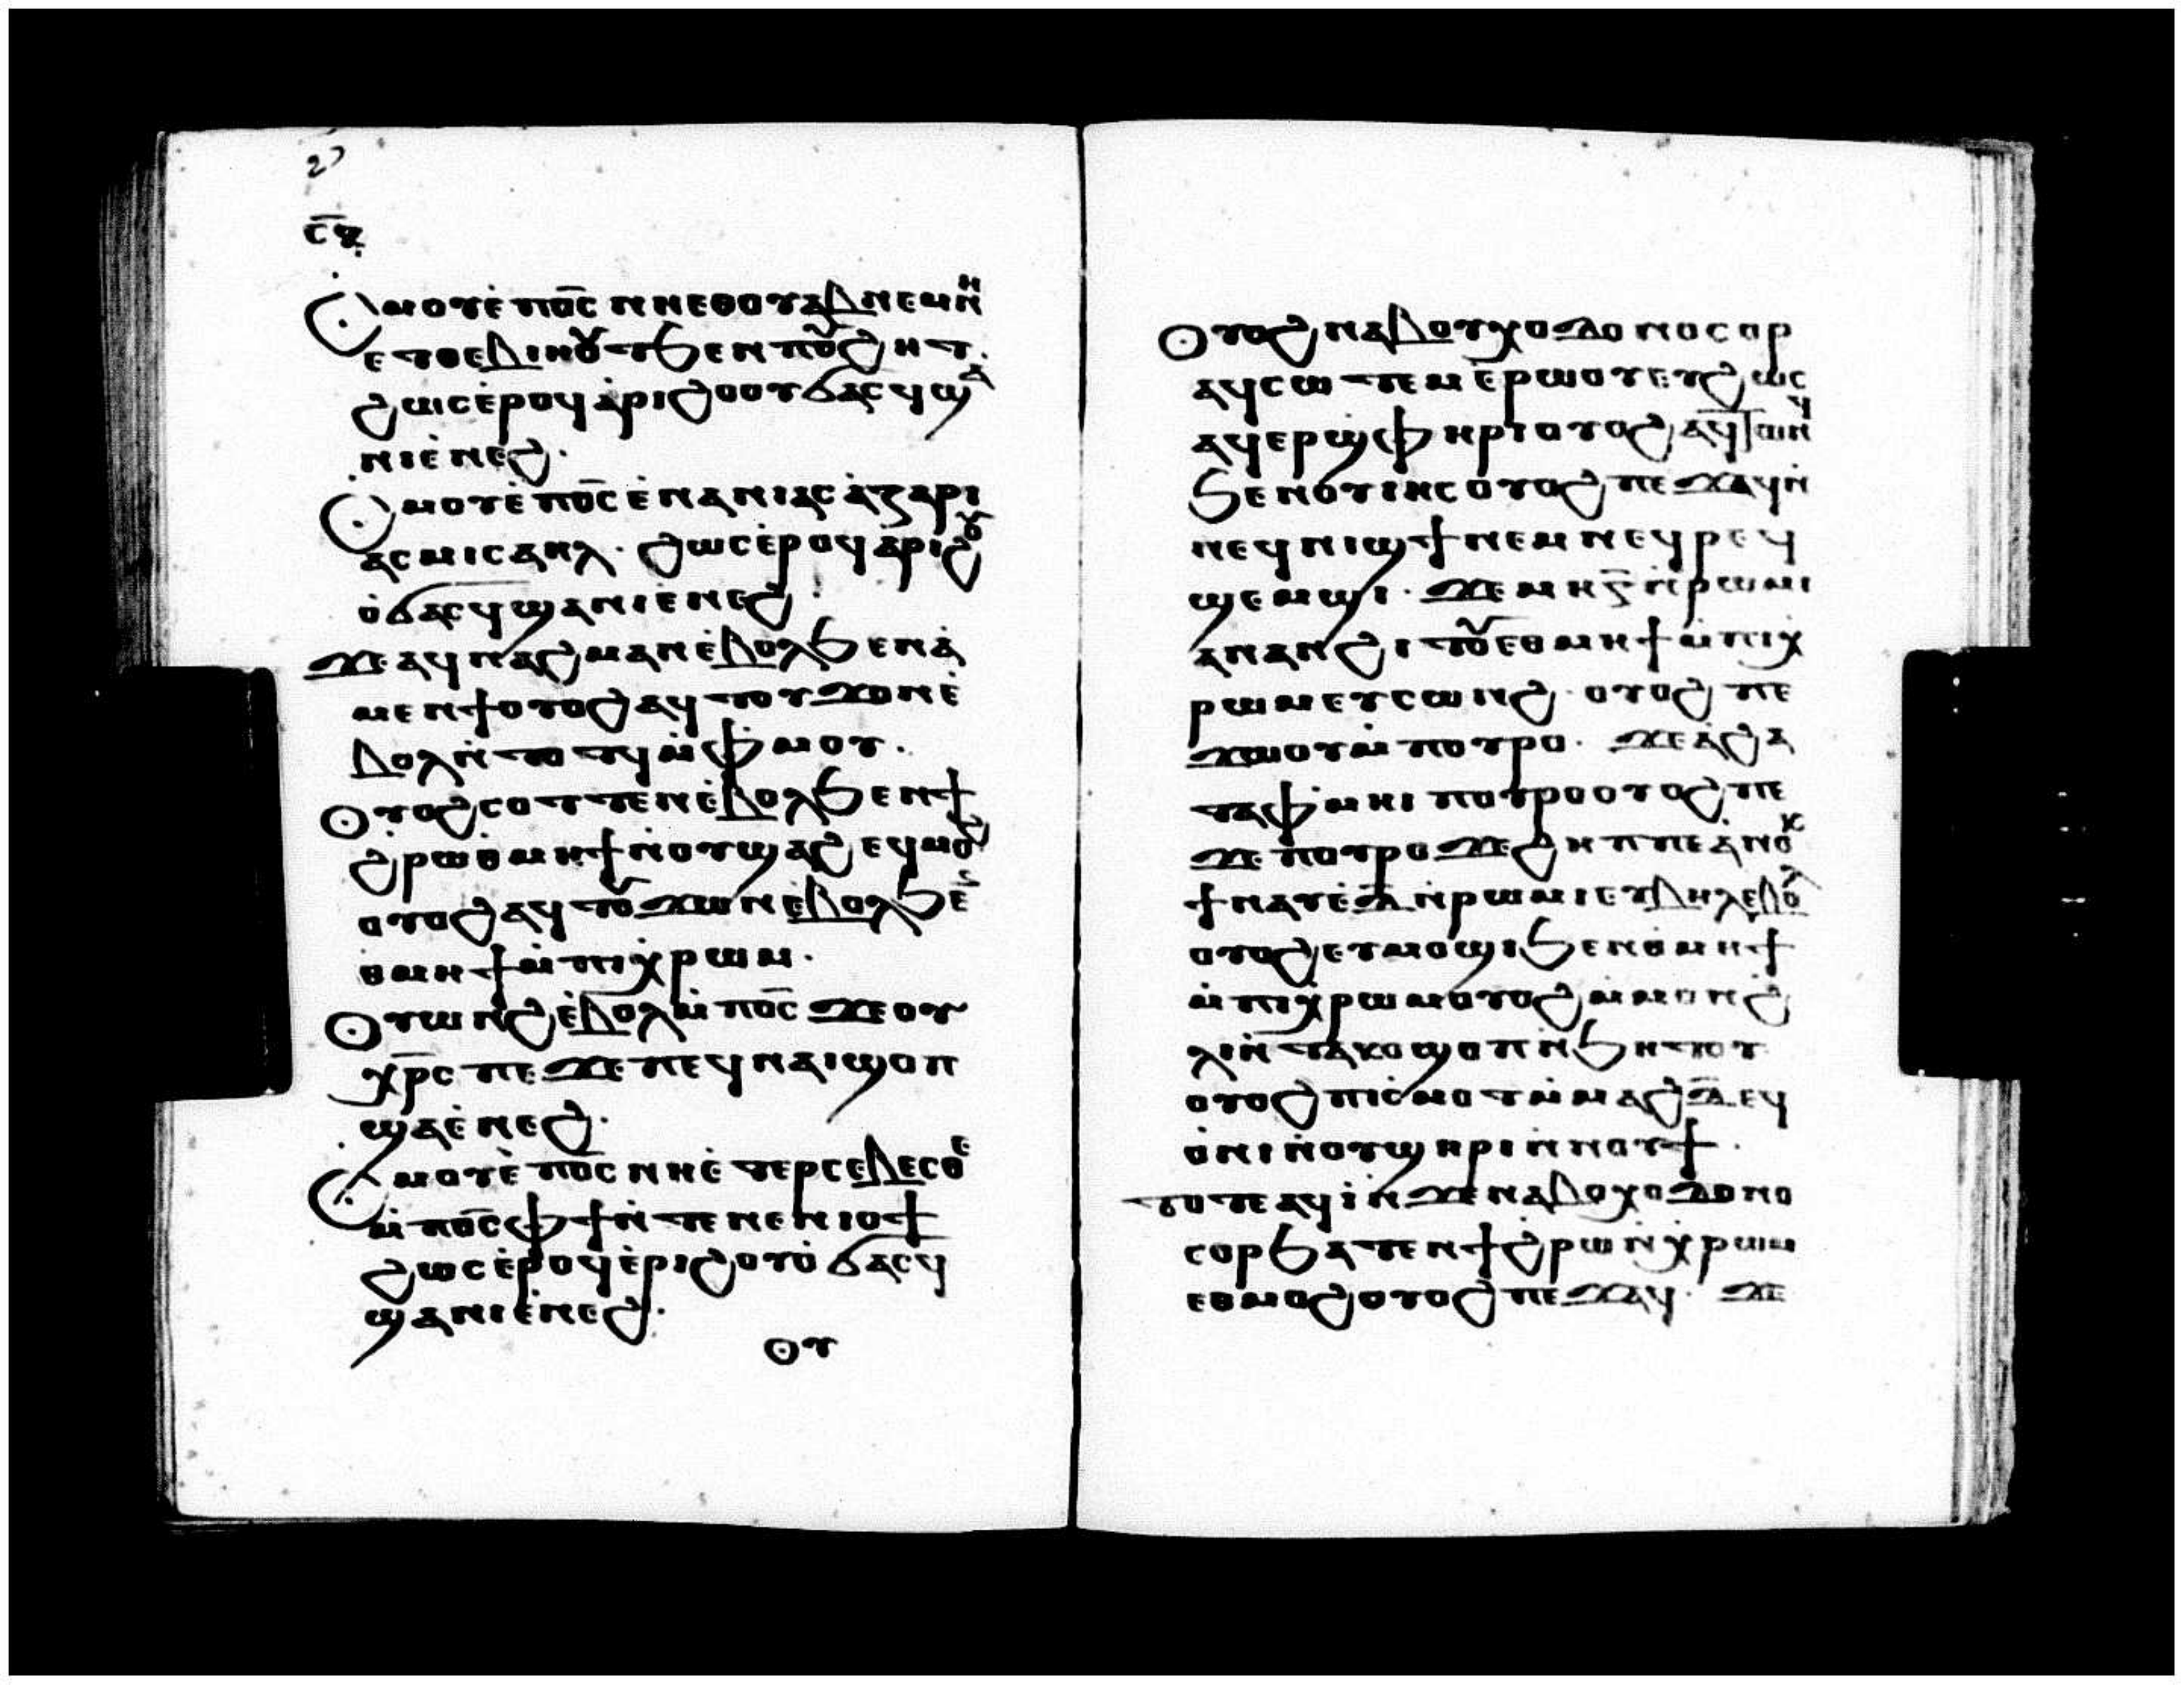 ⲥ︦ϥ
Ⲥⲙⲟⲩⲉ̀ ⲡⲟ̅ⲥ̅ ⲛⲛⲉⲑⲟⲩⲁⲃ ⲛⲉⲙ ⲛⲏ
ⲉⲧⲑⲉⲃⲓⲏⲟⲩⲧ ϧⲉⲛ ⲡⲟⲩϩⲏⲧ.
ϩⲱⲥ ⲉ̀ⲣⲟϥ ⲁ̀ⲣⲓϩⲟⲟⲩ ϭⲁⲥϥ ϣⲁ
ⲛⲓⲉ̀ⲛⲉϩ.
Ⲥⲙⲟⲩⲉ̀ ⲡⲟ̅ⲥ̅ ⲉ̀ⲛⲁⲛⲓⲁⲥ ⲁ̀ⲍⲁⲣⲓ
ⲁⲥ ⲙⲓⲥⲁⲏⲗ. ϩⲱⲥ ⲉ̀ⲣⲟϥ ⲁ̀ⲣⲓϩⲟⲩ
ⲟ̀ϭⲁⲥϥ ϣⲁⲛⲓⲉ̀ⲛⲉϩ.
ϫⲉ ⲁϥⲛⲁϩⲙⲁⲛ ⲉ̀ⲃⲟⲗ ϧⲉⲛ ⲁ̀
ⲙⲉⲛϯ ⲟⲩⲟϩ ⲁϥⲧⲟⲩϫⲟⲛ ⲉ̀
ⲃⲟⲗ ⲛ̀ⲧⲟⲧϥ ⲙ̀ⲫⲙⲟⲩ.
Ⲟⲩⲟϩ ⲥⲟⲧⲧⲉⲛ ⲉ̀ⲃⲟⲗ ϧⲉⲛ ϯ
ϩ̀ⲣⲱ ⲑ̀ⲙⲏϯ ⲛ̀ⲟⲩϣⲁϩ ⲉϥⲙⲟϩ
ⲟⲩⲟϩ ⲁϥⲧⲟⲩϫⲱⲛ ⲉ̀ⲃⲟⲗ ϧⲉ̅
ⲑⲙⲏϯ ⲙ̀ⲡⲓⲭ̀ⲣⲱⲙ.
Ⲟⲩⲱⲛϩ ⲉ̀ⲃⲟⲗ ⲙ̀ⲡⲟ̅ⲥ̅ ϫⲉ ⲟⲩ
ⲭ̅ⲣ̅ⲥ ⲡⲉ ϫⲉ ⲡⲉϥⲛⲁⲓ ϣⲟⲡ
ϣⲁⲉ̀ⲛⲉϩ.
Ⲥⲙⲟⲩⲉ̀ ⲡⲟ̅ⲥ̅ ⲛⲏⲉ̀ⲧⲉⲣⲥⲉⲃⲉⲥⲑⲉ
ⲙ̀ⲡⲟ̅ⲥ̅ ⲫϯ ⲛ̀ⲧⲉ ⲛⲉⲛⲓⲟϯ
ϩⲱⲥ ⲉ̀ⲣⲟϥ ⲉ̀ⲣⲓϩⲟⲩⲟ̀ ϭⲁⲥϥ
ϣⲁⲛⲓⲉ̀ⲛⲉϩ.
Ⲟⲩ
Ⲟⲩⲟϩ ⲛⲁⲃⲟⲩⲭⲟⲇⲟⲛⲟⲥⲟⲣ
ⲁϥⲥⲱⲧⲉⲙ ⲉ̀ⲣⲱⲟⲩ ⲉⲩϩⲱⲥ
ⲁϥⲉⲣϣⲫⲏⲣⲓ ⲟⲩⲟϩ ⲁϥⲧⲱⲛϥ
ϧⲉⲛ ⲟⲩⲓⲏⲥ ⲟⲩⲟϩ ⲡⲉϫⲁϥ ⲛ̀
ⲛⲉϥⲛⲓϣϯ ⲛⲉⲙ ⲛⲉϥⲣⲉϥ
ϣⲉⲙϣⲓ. ϫⲉ ⲙⲏ ⲅ̅ ⲛ̀ⲣⲱⲙⲓ
ⲁⲛ ⲁⲛϩⲓⲧⲟⲩ ⲉⲑⲙⲏϯ ⲙ̀ⲡⲓⲭ
ⲣⲱⲙ ⲉⲩⲥⲱⲛϩ. ⲟⲩⲟϩ ⲡⲉ
ϫⲱⲟⲩ ⲙ̀ⲡⲟⲩⲣⲟ. ϫⲉ ⲁ̀ϩⲁ
ⲧⲁⲫⲙⲏⲓ ⲡⲟⲩⲣⲟ ⲟⲩⲟϩ ⲡⲉ
ϫⲉ ⲡⲟⲩⲣⲟ ϫⲉ ϩⲏⲡⲡⲉ ⲁ̀ⲛⲟⲕ
ϯⲛⲁⲩ ⲉ̀ⲇ̅ ⲛ̀ⲣⲱⲙⲓ ⲉⲩⲃⲏⲗ ⲉⲃⲟⲗ
ⲟⲩⲟϩ ⲉⲩⲙⲟϣⲓ ϧⲉⲛ ⲑ̀ⲙⲏϯ
ⲙ̀ⲡⲓⲭ̀ⲣⲱⲙ ⲟⲩⲟϩ ⲙⲙⲟⲛ ϩ̀
ⲗⲓ ⲛ̀ⲧⲁⲕⲟ ϣⲟⲡ ⲛ̀ϧⲏⲧⲟⲩ
ⲟⲩⲟϩ ⲡⲓⲥ̀ⲙⲟⲧ ⲙ̀ⲙⲁϩⲇ̅ ⲉϥ
ⲟ̀ⲛⲓ ⲛ̀ⲟⲩϣⲏⲣⲓ ⲛ̀ⲛⲟⲩϯ.
ⲧⲟⲧⲉ ⲁϥⲓ̀ ⲛ̀ϫⲉ ⲛⲁⲃⲟⲭⲟⲇⲟⲛⲟ
ⲥⲟⲣ ϧⲁⲧⲉⲛ ϯϩ̀ⲣⲱ ⲛ̀ⲭⲣⲱⲙ
ⲉⲑⲙⲟϩ ⲟⲩⲟϩ ⲡⲉϫⲁϥ. ϫⲉ